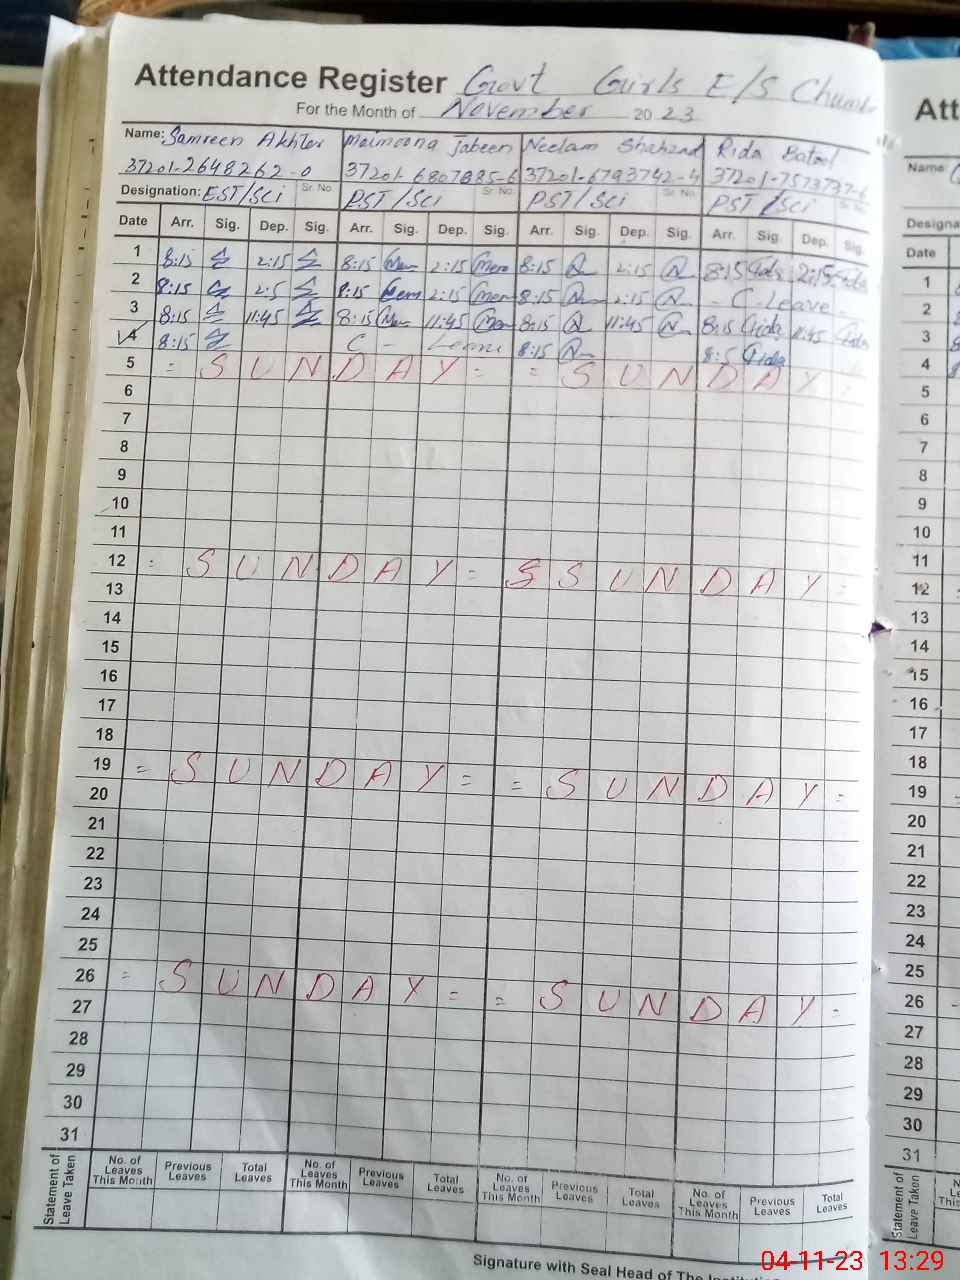 Attendance Register Govt Girls E/S
For the Month of November 2023
Name: Samreen Akhter Maimoona Jabeen Neelam Shahzad Rida Batool
37201-2648262-0 37201-6807885-6 37201-6793742-4 37201-7573737-6
Designation: EST/Sci Sr. No. PST/Sci PST/Sci Sr. No. PST/Sci Sr. No.
Date Arr. Sig. Dep. Sig. Arr. Sig. Dep. Sig. Arr. Sig. Dep. Sig. Arr. Sig. Dep. Sig.
1 8:15 2:15 8:15 2:15 8:15 2:15 8:15 2:15
2 8:15 2:5 8:15 2:15 8:15 2:15 - C-Leave -
3 8:15 11:45 8:15 11:45 8:15 11:45 8:15 11:45
4 8:15 C - Leave 8:15 8:5
5 = SUNDAY = = SUNDAY =
6
7
8
9
10
11
12 = SUNDAY = S SUNDAY =
13
14
15
16
17
18
19 = SUNDAY = = SUNDAY =
20
21
22
23
24
25
26 = SUNDAY = = SUNDAY =
27
28
29
30
31
Statement of Leave Taken
No. of Leaves This Month Previous Leaves Total Leaves No. of Leaves This Month Previous Leaves Total Leaves No. of Leaves This Month Previous Leaves Total Leaves No. of Leaves This Month Previous Leaves Total Leaves
Signature with Seal Head of The
Att
Name:
Designa
Date
1
2
3
4
5
6
7
8
9
10
11
12
13
14
15
16
17
18
19
20
21
22
23
24
25
26
27
28
29
30
31
Statement of Leave Taken
04-11-23 13:29